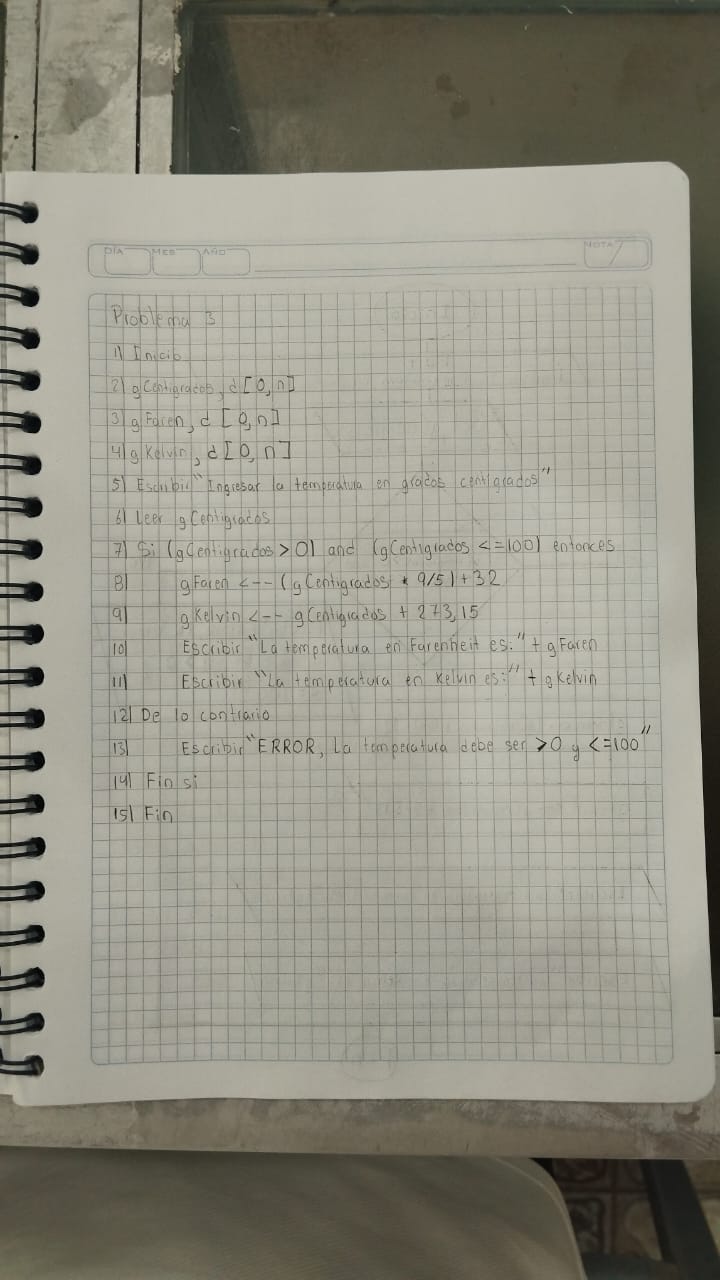 DÍA MES AÑO NOTA
Problema 3
1) Inicio
2) gCentigrados, d [0, n]
3) gFaren, d [0, n]
4) gKelvin, d [0, n]
5) Escribir "Ingresar la temperatura en grados centigrados"
6) Leer gCentigrados
7) Si (gCentigrados > 0) and (gCentigrados <= 100) entonces
8) gFaren <-- (gCentigrados * 9/5) + 32
9) gKelvin <-- gCentigrados + 273,15
10) Escribir "La temperatura en Farenheit es:" + gFaren
11) Escribir "La temperatura en Kelvin es:" + gKelvin
12) De lo contrario
13) Escribir "ERROR, La temperatura debe ser >0 y <=100"
14) Fin si
15) Fin